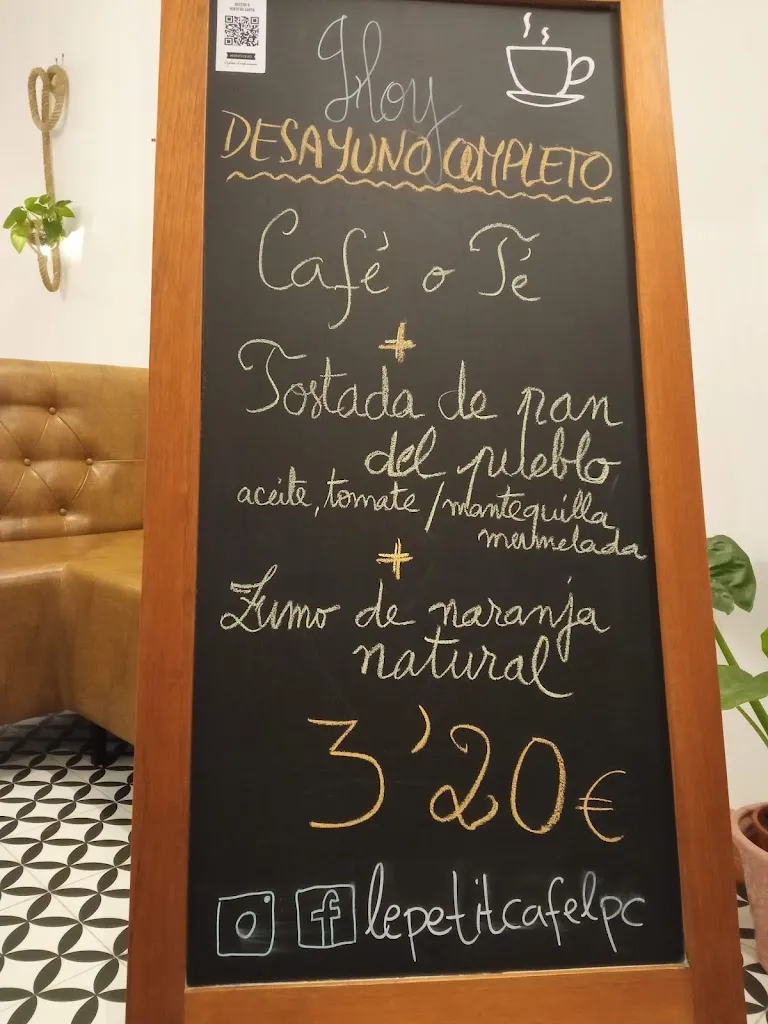 Hoy
DESAYUNO COMPLETO
Café o Té
+
Tostada de pan
del pueblo
aceite, tomate / mantequilla,
mermelada
+
Zumo de naranja
natural
3'20€
lepetitcafelpc